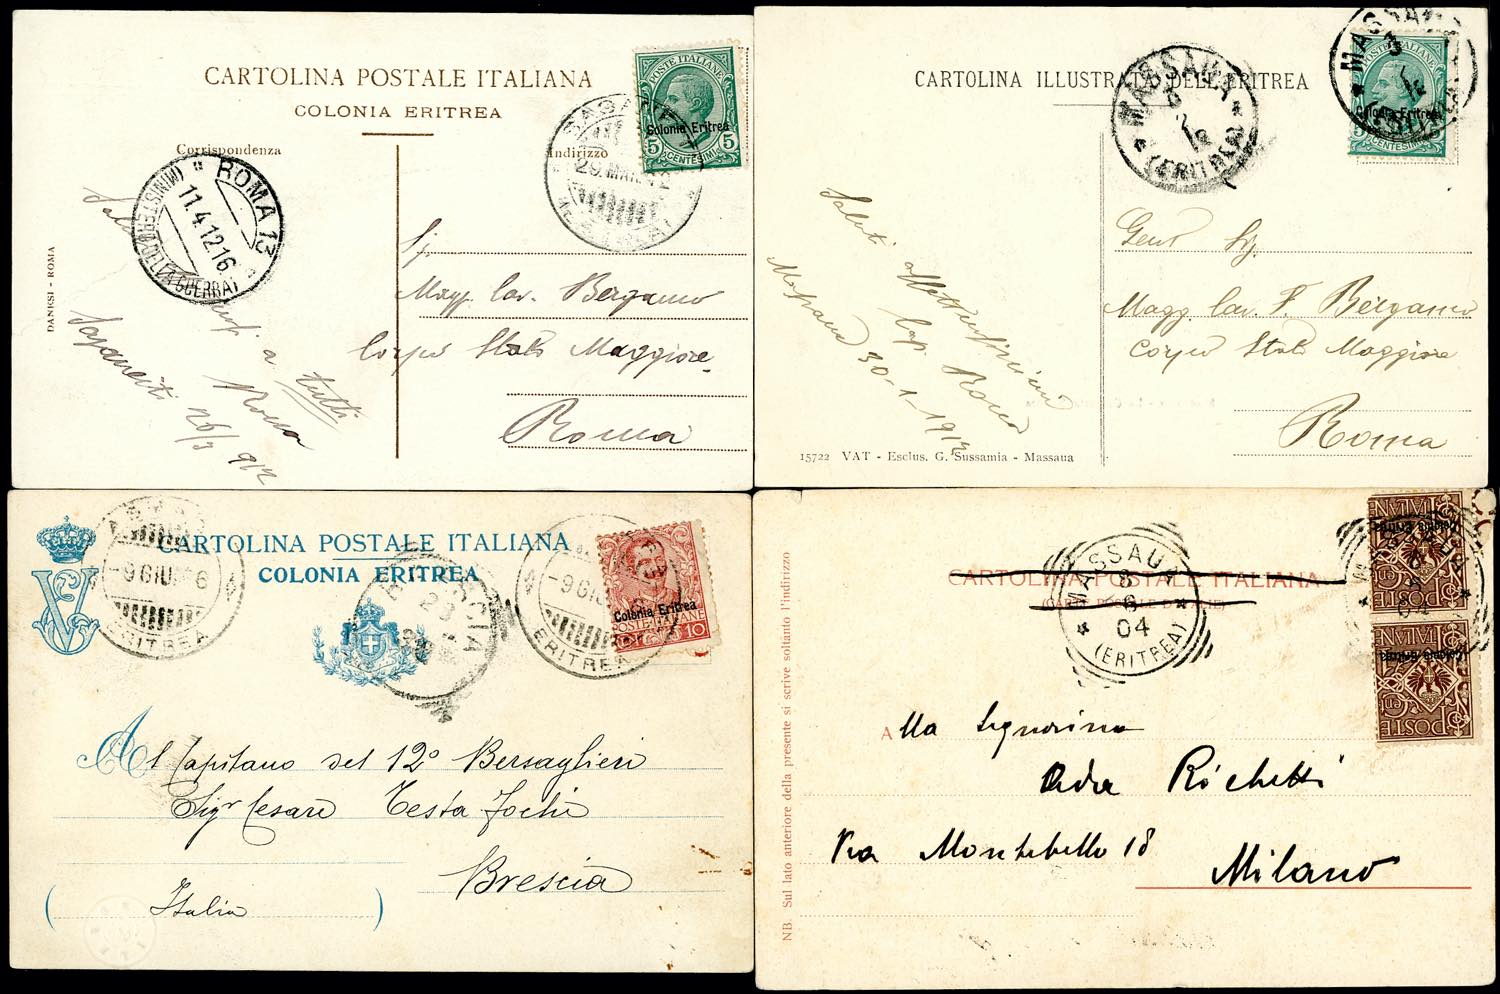 CARTOLINA POSTALE ITALIANA
COLONIA ERITREA
Corrispondenza
Indirizzo
POSTE ITALIANE
Colonia Eritrea
5 5
CENTESIMI
29 MAR 12
ROMA 13
11.4.12.16
(MINISTERO DELLA GUERRA)
DANESI - ROMA
a tutti
Roma
Saganeiti 26/3 912
Sig.
Magg. Cav. Bergamo
Corpo Stato Maggiore
Roma
CARTOLINA ILLUSTRATA DELL'ERITREA
MASSAUA
(ERITREA)
MASSAUA
3
POSTE ITALIANE
Colonia Eritrea
5
CENTESIMI
Saluti affettuosissimi
Cap. Rocca
Massaua 30-1-1912
Gent Sig.
Magg. Cav. F. Bergamo
Corpo Stato Maggiore
Roma
15722 VAT - Esclus. G. Sussamia - Massaua
CARTOLINA POSTALE ITALIANA
COLONIA ERITREA
-9 GIU 6
ERITREA
BRESCIA
23
-9 GIU
ERITREA
Colonia Eritrea
POSTE ITALIANE
10
Al Capitano del 12° Bersaglieri
Sigr Cesare Testa Fochi
Brescia
( Italia )
CARTOLINA POSTALE ITALIANA
(CARTE POSTALE D'ITALIE)
MASSAUA
8
6
04
(ERITREA)
POSTE ITALIANE
Colonia Eritrea
POSTE ITALIANE
Colonia Eritrea
Alla Signorina
Ada Richetti
Via Montebello 18
Milano
NB. Sul lato anteriore della presente si scrive soltanto l'indirizzo